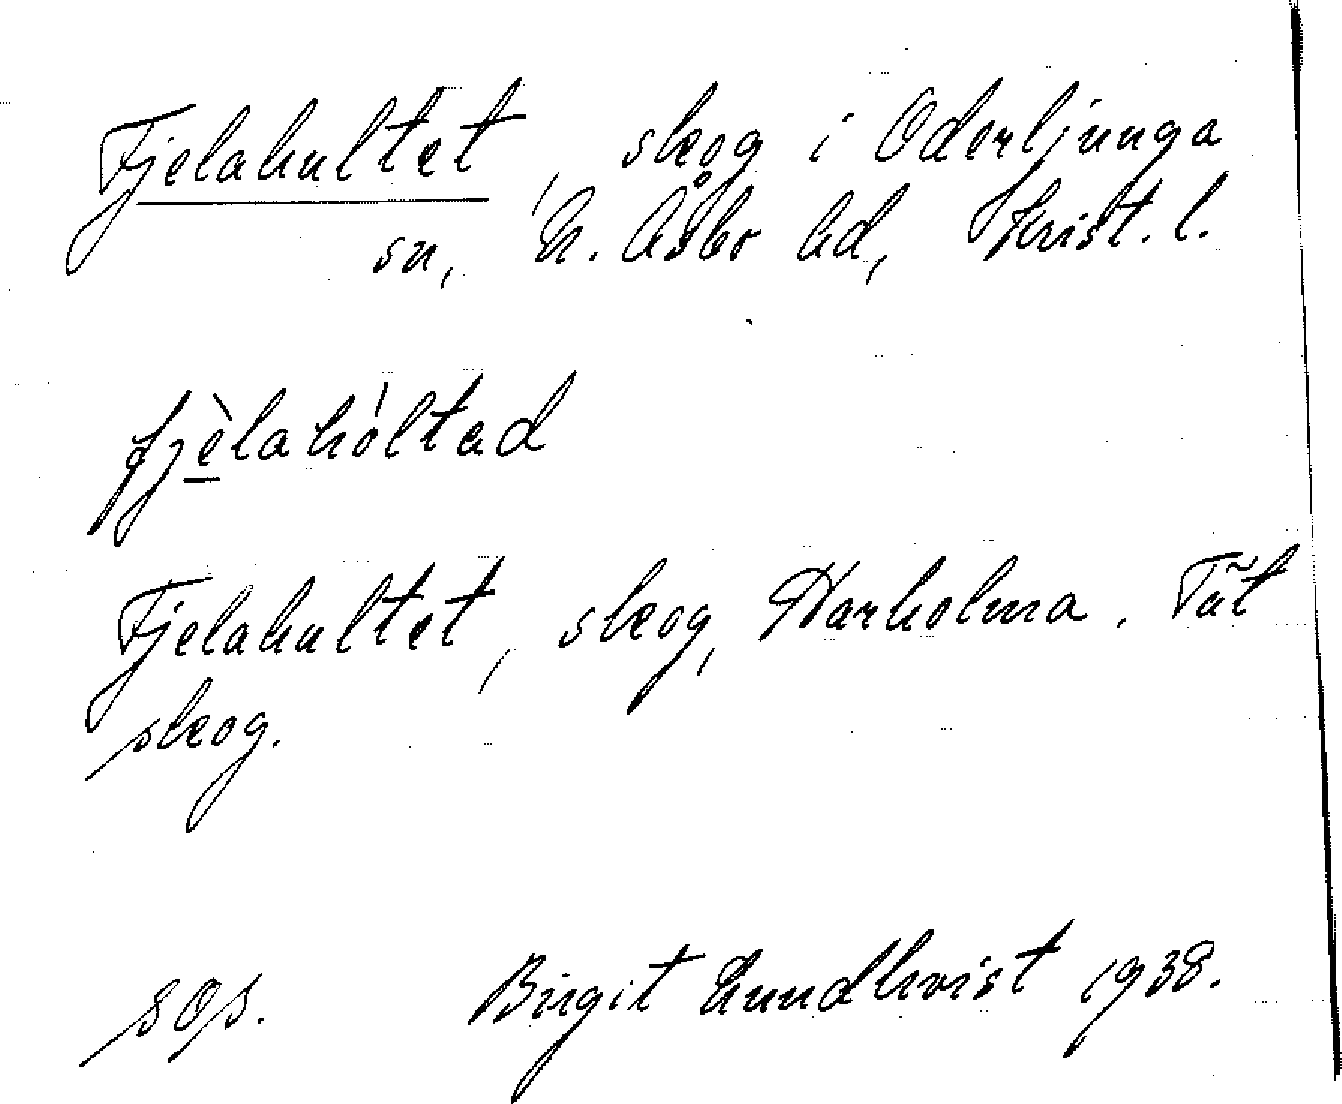 Fjelahultet, skog i Oderljunga
sn, N. Åsbo hd, Krist. l.
fjèlahóltad
Fjelahultet, skog, Harholma. Tät
skog.
sgs. Birgit Lundkvist 1938.